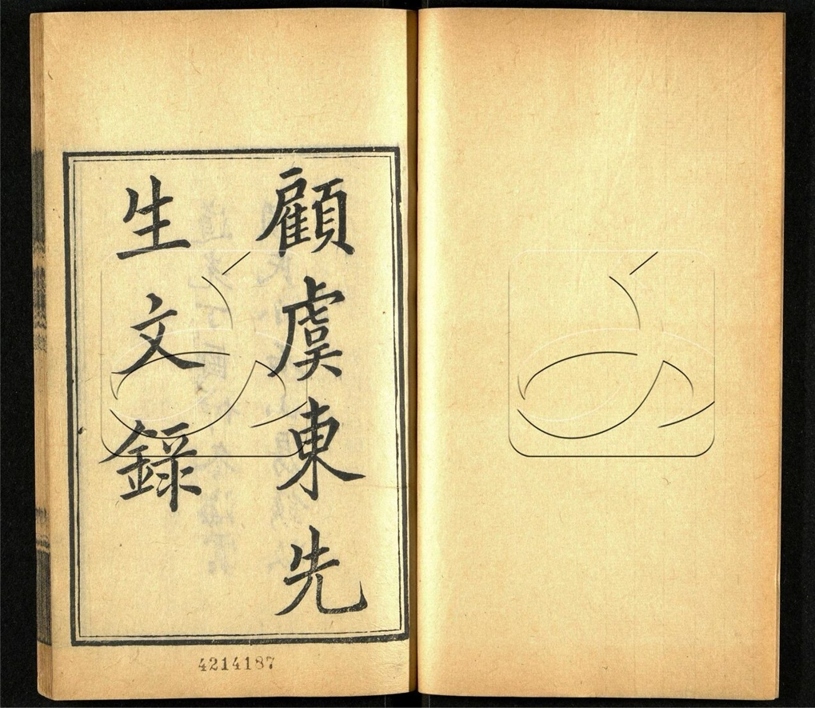 顧虞東先
生文錄
4214187